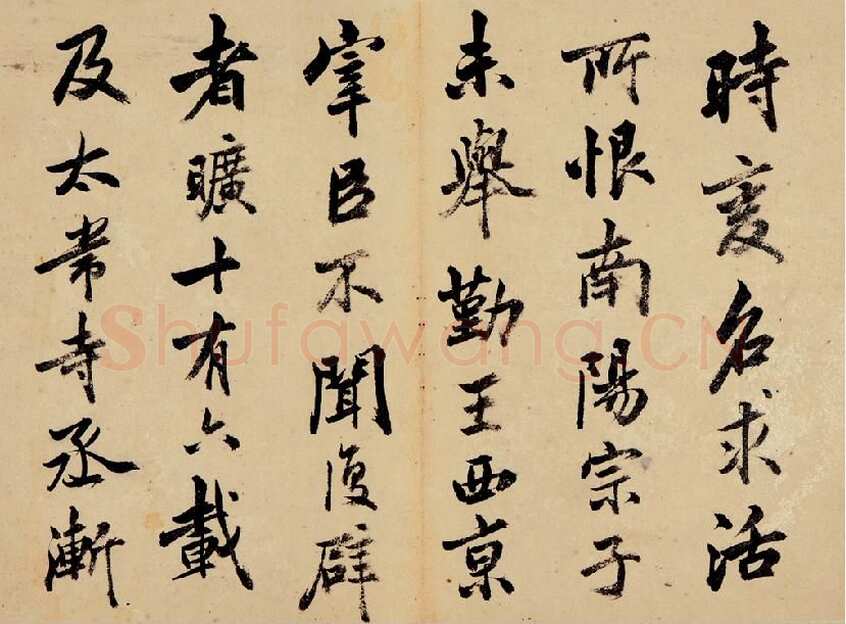 時変名求活
所恨南陽宗子
未舉勤王西京
宰臣不聞復辟
者曠十有六載
及太常寺丞漸
Shufawang.CN